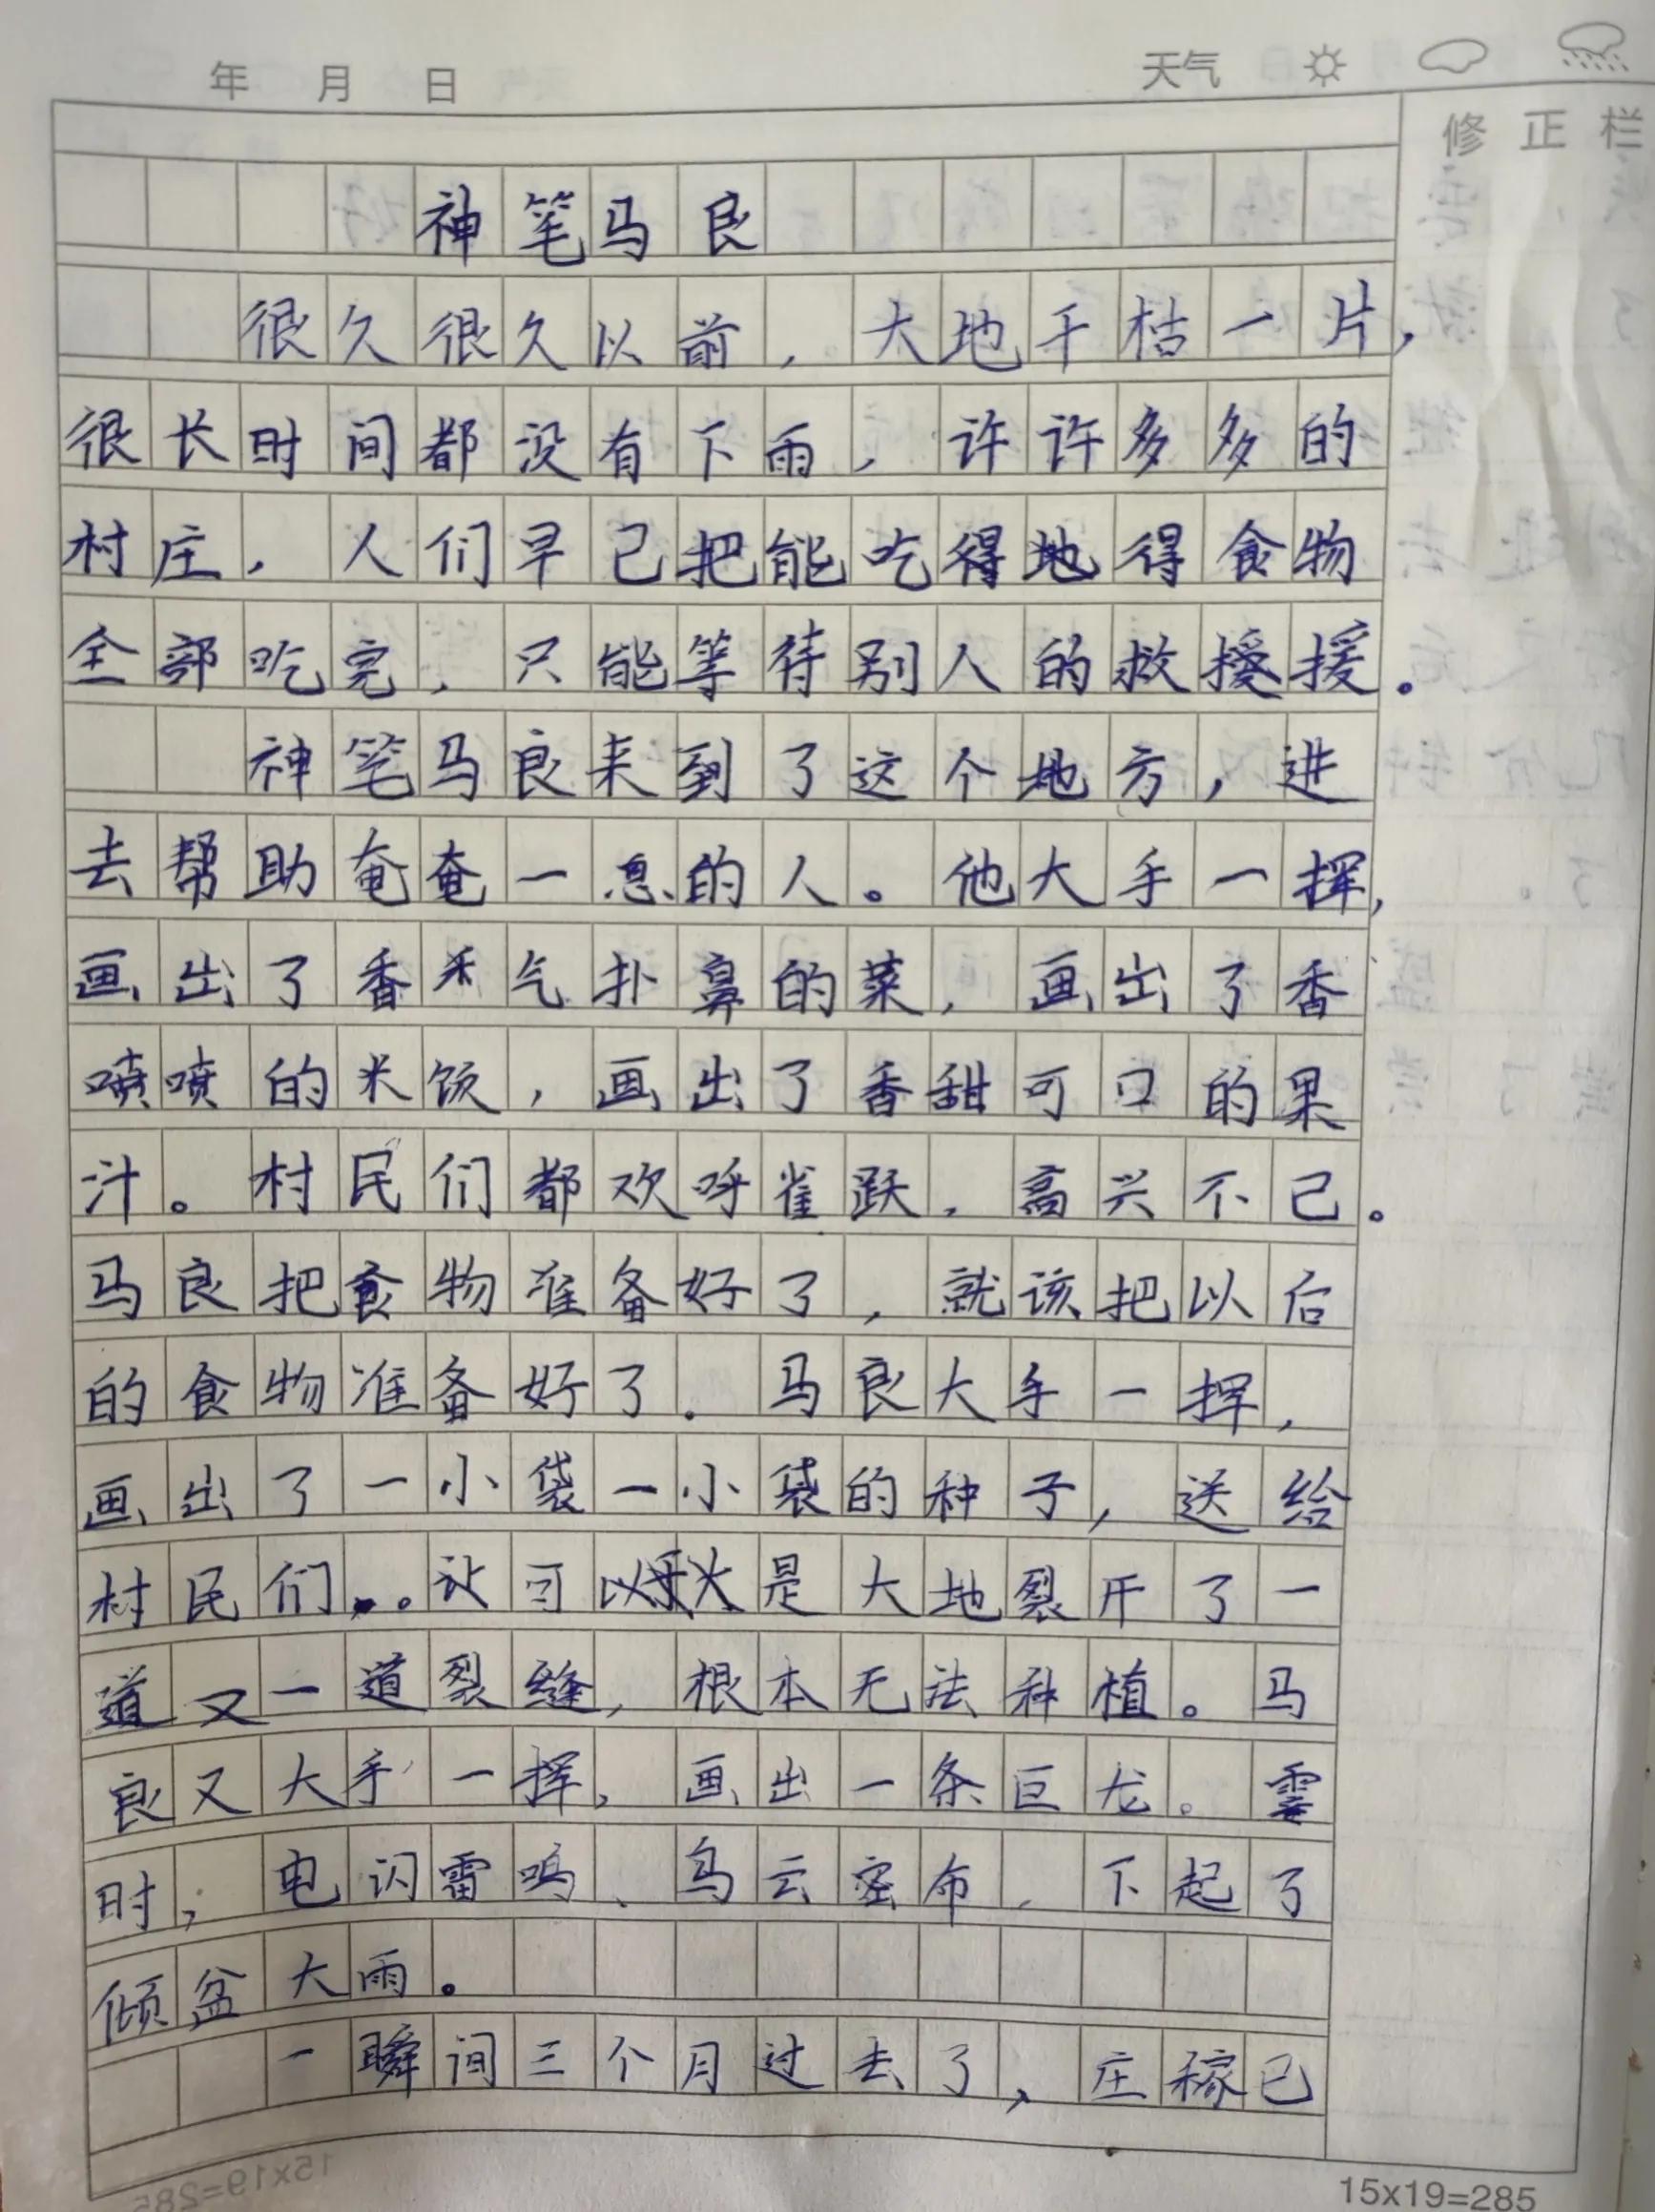 年 月 日 天气
修正栏
神笔马良
很久很久以前，大地干枯一片，
很长时间都没有下雨，许许多多的
村庄，人们早己把能吃得地得食物
全部吃完，只能等待别人的救援援。
神笔马良来到了这个地方，进
去帮助奄奄一息的人。他大手一挥，
画出了香香气扑鼻的菜，画出了香
喷喷的米饭，画出了香甜可口的果
汁。村民们都欢呼雀跃，高兴不己。
马良把食物准备好了，就该把以后
的食物准备好了。马良大手一挥，
画出了一小袋一小袋的种子，送给
村民们。让可以是大地裂开了一
道又一道裂缝，根本无法种植。马
良又大手一挥，画出一条巨龙。霎
时，电闪雷鸣、乌云密布，下起了
倾盆大雨。
一瞬间三个月过去了，庄稼已
15x19=285